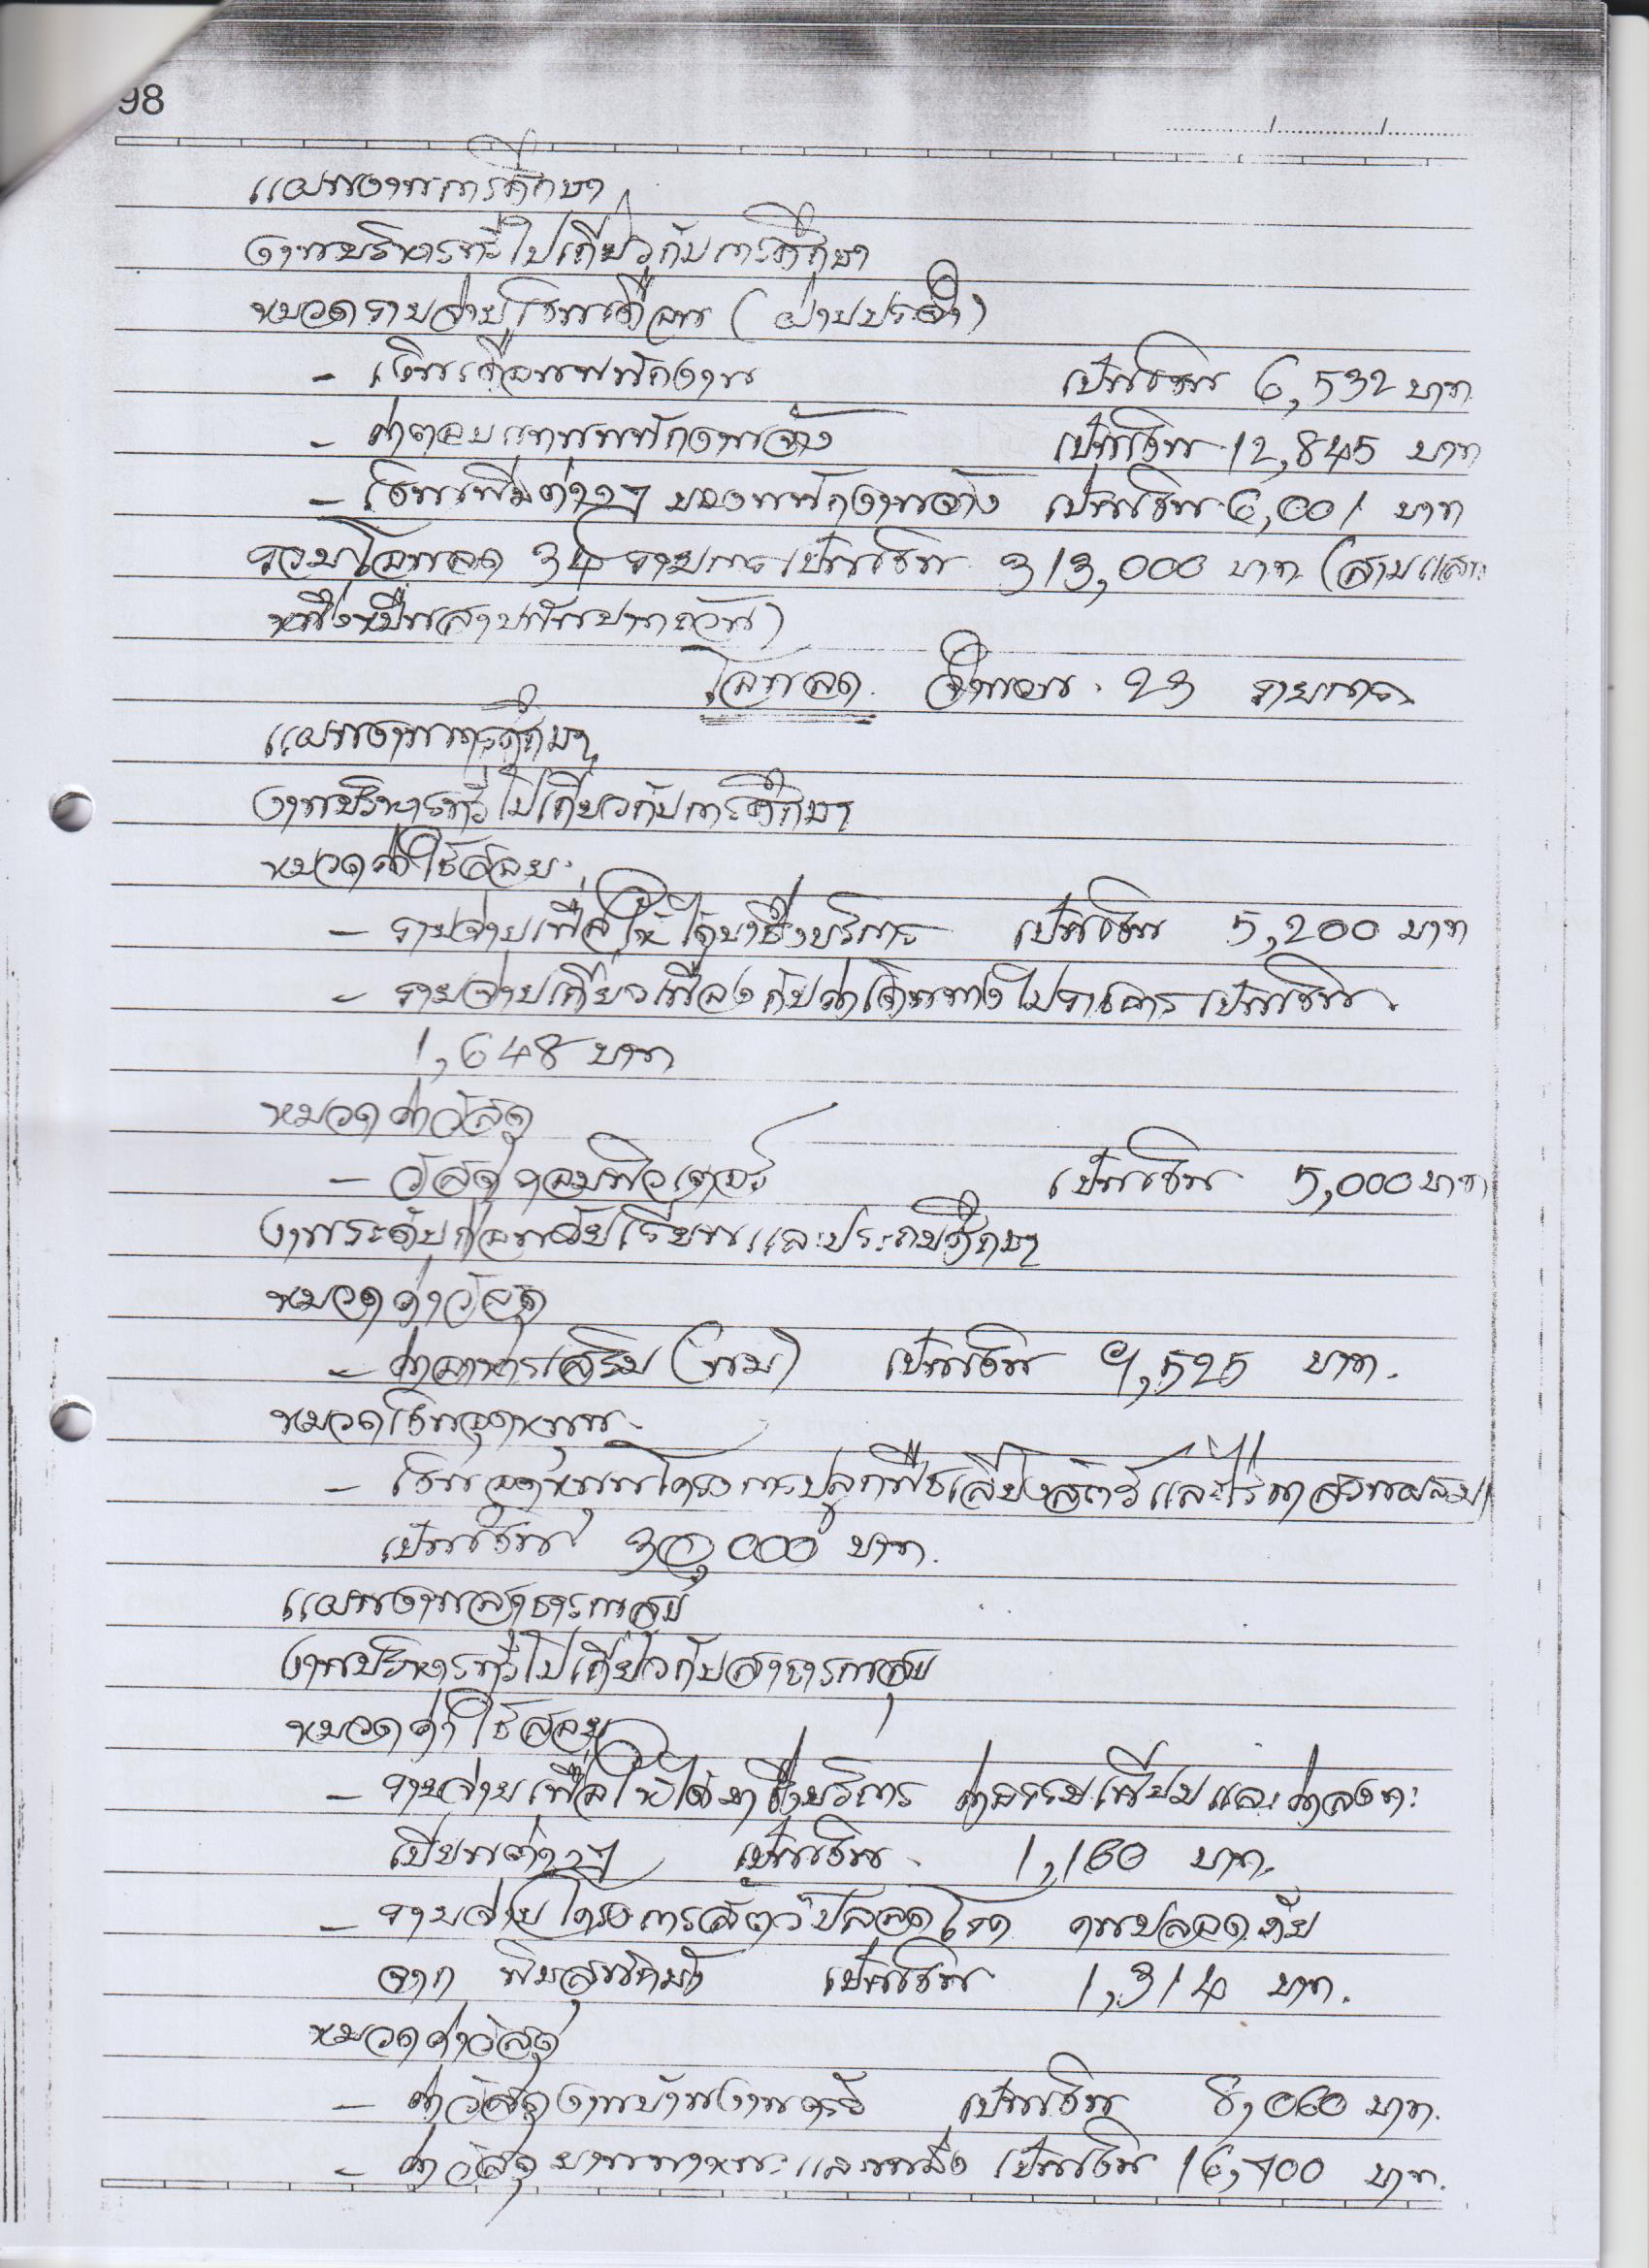 98
แผนงานการศึกษา
งานบริหารทั่วไปเกี่ยวกับการศึกษา
หมวดรายจ่ายเงินเดือน (ฝ่ายประจำ)
- เงินเดือนพนักงาน เป็นเงิน 6,532 บาท
- ค่าตอบแทนพนักงานจ้าง เป็นเงิน 12,845 บาท
- เงินเพิ่มต่างๆ ของพนักงานจ้าง เป็นเงิน 6,001 บาท
รวมโอนลด 34 รายการ เป็นเงิน 313,000 บาท (สามแสน
หนึ่งหมื่นสามพันบาทถ้วน)
โอนลด จำนวน 23 รายการ
แผนงานการศึกษา
งานบริหารทั่วไปเกี่ยวกับการศึกษา
หมวดค่าใช้สอย
- รายจ่ายเพื่อให้ได้มาซึ่งบริการ เป็นเงิน 5,200 บาท
- รายจ่ายเกี่ยวเนื่องกับค่าเดินทางไปราชการ เป็นเงิน
1,648 บาท
หมวดค่าวัสดุ
- วัสดุคอมพิวเตอร์ เป็นเงิน 5,000 บาท
งานระดับก่อนวัยเรียนและประถมศึกษา
หมวดค่าวัสดุ
- ค่าอาหารเสริม (นม) เป็นเงิน 9,525 บาท.
หมวดเงินอุดหนุน
- เงินอุดหนุนโครงการปลูกพืชเลี้ยงสัตว์และไร่นาสวนผสม
เป็นเงิน 30,000 บาท.
แผนงานสาธารณสุข
งานบริหารทั่วไปเกี่ยวกับสาธารณสุข
หมวดค่าใช้สอย
- รายจ่ายเพื่อให้ได้มาซึ่งบริการ ค่าธรรมเนียมและค่าลงทะ
เบียนต่างๆ เป็นเงิน 1,160 บาท.
- รายจ่ายโครงการสัตว์ปลอดโรค คนปลอดภัย
จาก พิษสุนัขบ้า เป็นเงิน 1,314 บาท.
หมวดค่าวัสดุ
- ค่าวัสดุงานบ้านงานครัว เป็นเงิน 8,060 บาท.
- ค่าวัสดุยานพาหนะและขนส่ง เป็นเงิน บาท.